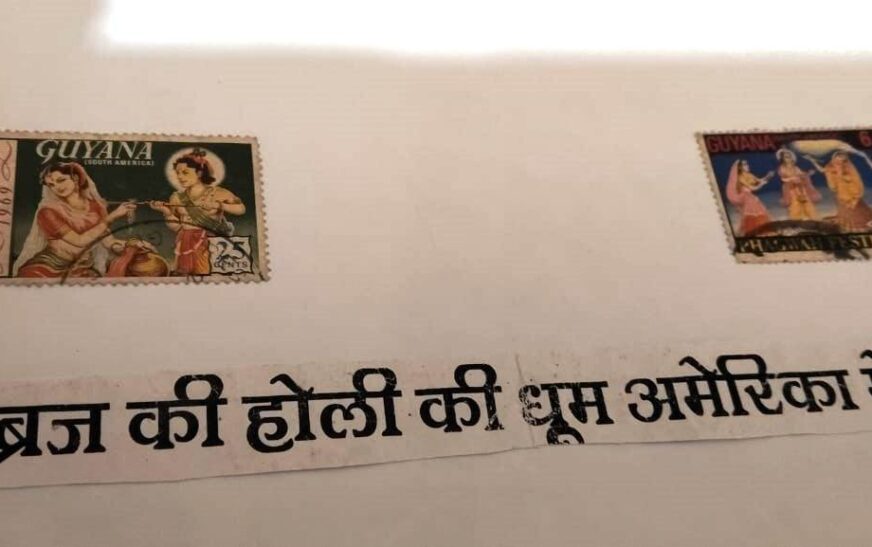 GUYANA
(SOUTH AMERICA)
1969
25
CENTS
GUYANA
PHAGWAH
ब्रज की होली की धूम अमेरिका